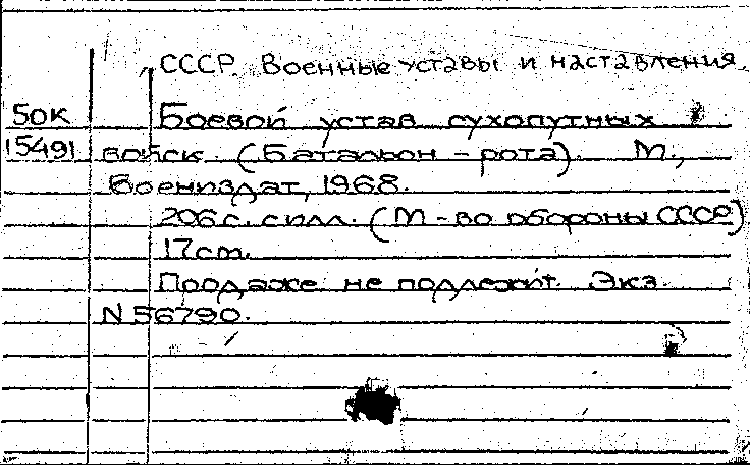 СССР. Военные уставы и наставления.
50К Боевой устав сухопутных
15491 войск (Батальон - рота). М.,
Воениздат, 1968.
206 с. с илл. (М-во обороны СССР)
17 cm.
Продаже не подлежит. Экз
N 56790.